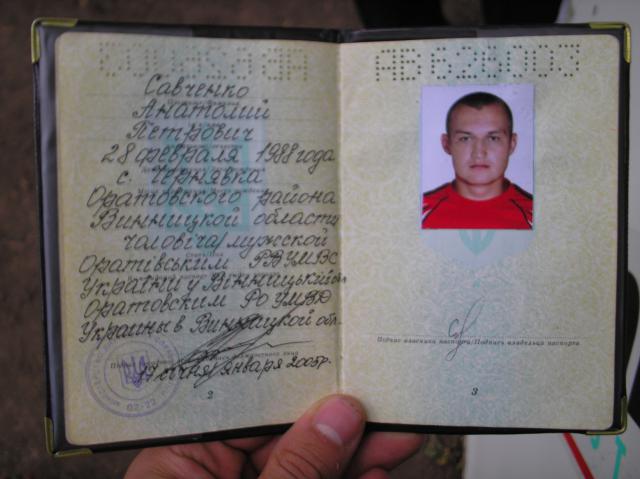 Савченко
Анатолий
Петрович
28 февраля 1988 года
с. Чернявка
Оратовского района
Винницкой области
чоловіча/мужской
Оратівським РВ УМВС
України у Вінницькій обл.
Оратовским РО УМВД
Украины в Винницкой обл.
січня/января 2005р.
2
АВ 626003
Підпис власника паспорта/Подпись владельца паспорта
3